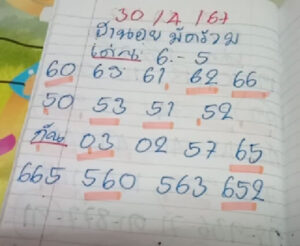 30/4/67
ฮานอย มัดรวม
เด่น 6.- 5
60 63 61 62 66
50 53 51 52
กัน 03 02 57 65
665 560 563 652